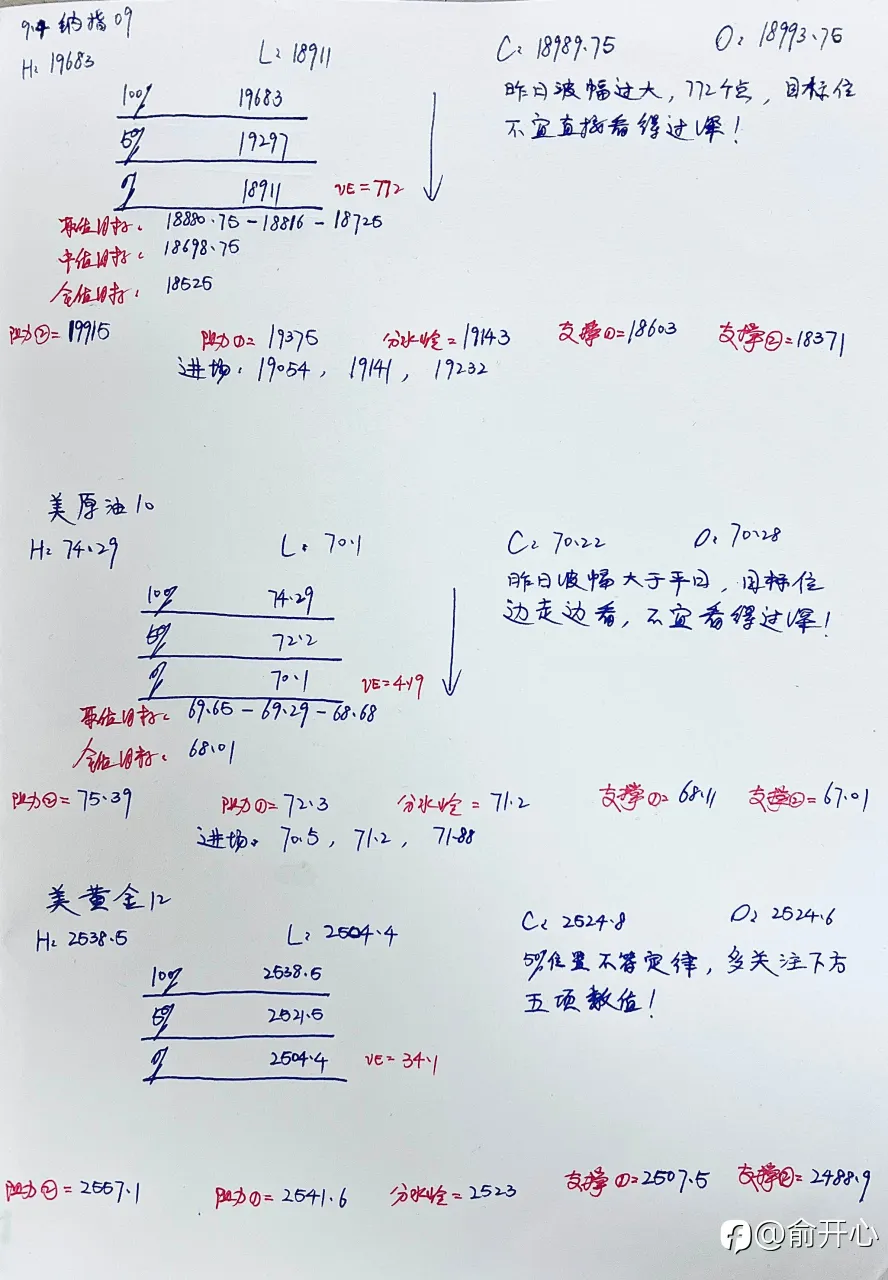 9.4 纳指09
H: 19683 L: 18911 C: 18989.75 O: 18993.75
昨日波幅过大，772个点，目标位
不宜直接看得过深！
100% 19683
50% 19297
0% 18911 VE=772
原位目标: 18880.75 - 18816 - 18725
中值目标: 18698.75
全值目标: 18525
阻力②=19915 阻力①=19375 分水岭=19143 支撑①=18603 支撑②=18371
进场: 19054, 19141, 19232
美原油10
H: 74.29 L: 70.1 C: 70.22 O: 70.28
昨日波幅大于平日，目标位
边走边看，不宜看得过深！
100% 74.29
50% 72.2
0% 70.1 VE=4.19
原位目标: 69.65 - 69.29 - 68.68
全值目标: 68.01
阻力②=75.39 阻力①=72.3 分水岭=71.2 支撑①=68.11 支撑②=67.01
进场: 70.5, 71.2, 71.88
美黄金12
H: 2538.5 L: 2504.4 C: 2524.8 O: 2524.6
50%位置不等定律，多关注下方
五项数值！
100% 2538.5
50% 2521.5
0% 2504.4 VE=34.1
阻力②=2557.1 阻力①=2541.6 分水岭=2523 支撑①=2507.5 支撑②=2488.9
@俞开心